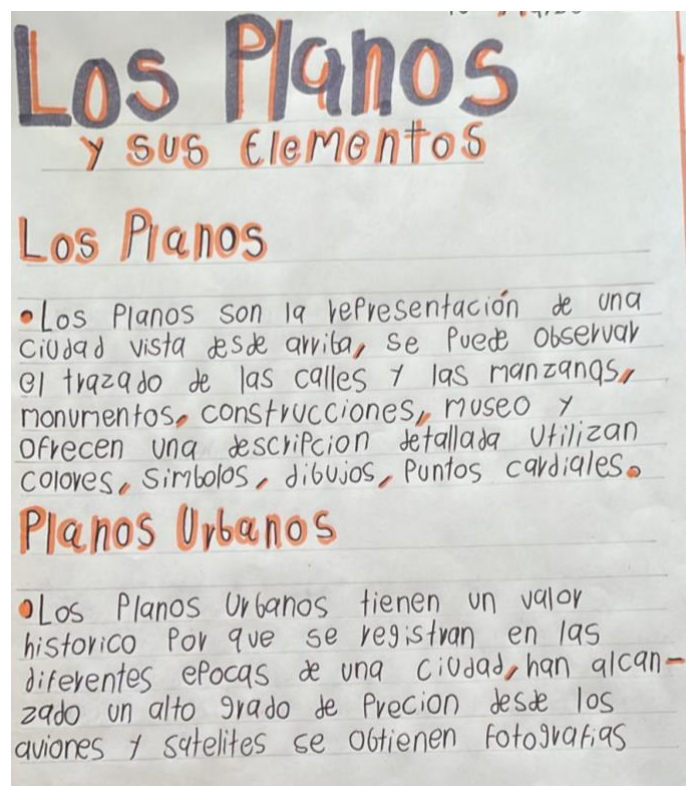 Los Planos
y sus Elementos
Los Planos
•Los Planos son la representación de una
ciudad vista desde arriba, se puede observar
el trazado de las calles y las manzanas,
monumentos, construcciones, museo y
ofrecen una descripcion detallada utilizan
colores, simbolos, dibujos, puntos cardiales.
Planos Urbanos
•Los Planos Urbanos tienen un valor
historico por que se registran en las
diferentes epocas de una ciudad, han alcan-
zado un alto grado de precion desde los
aviones y satelites se obtienen fotografias